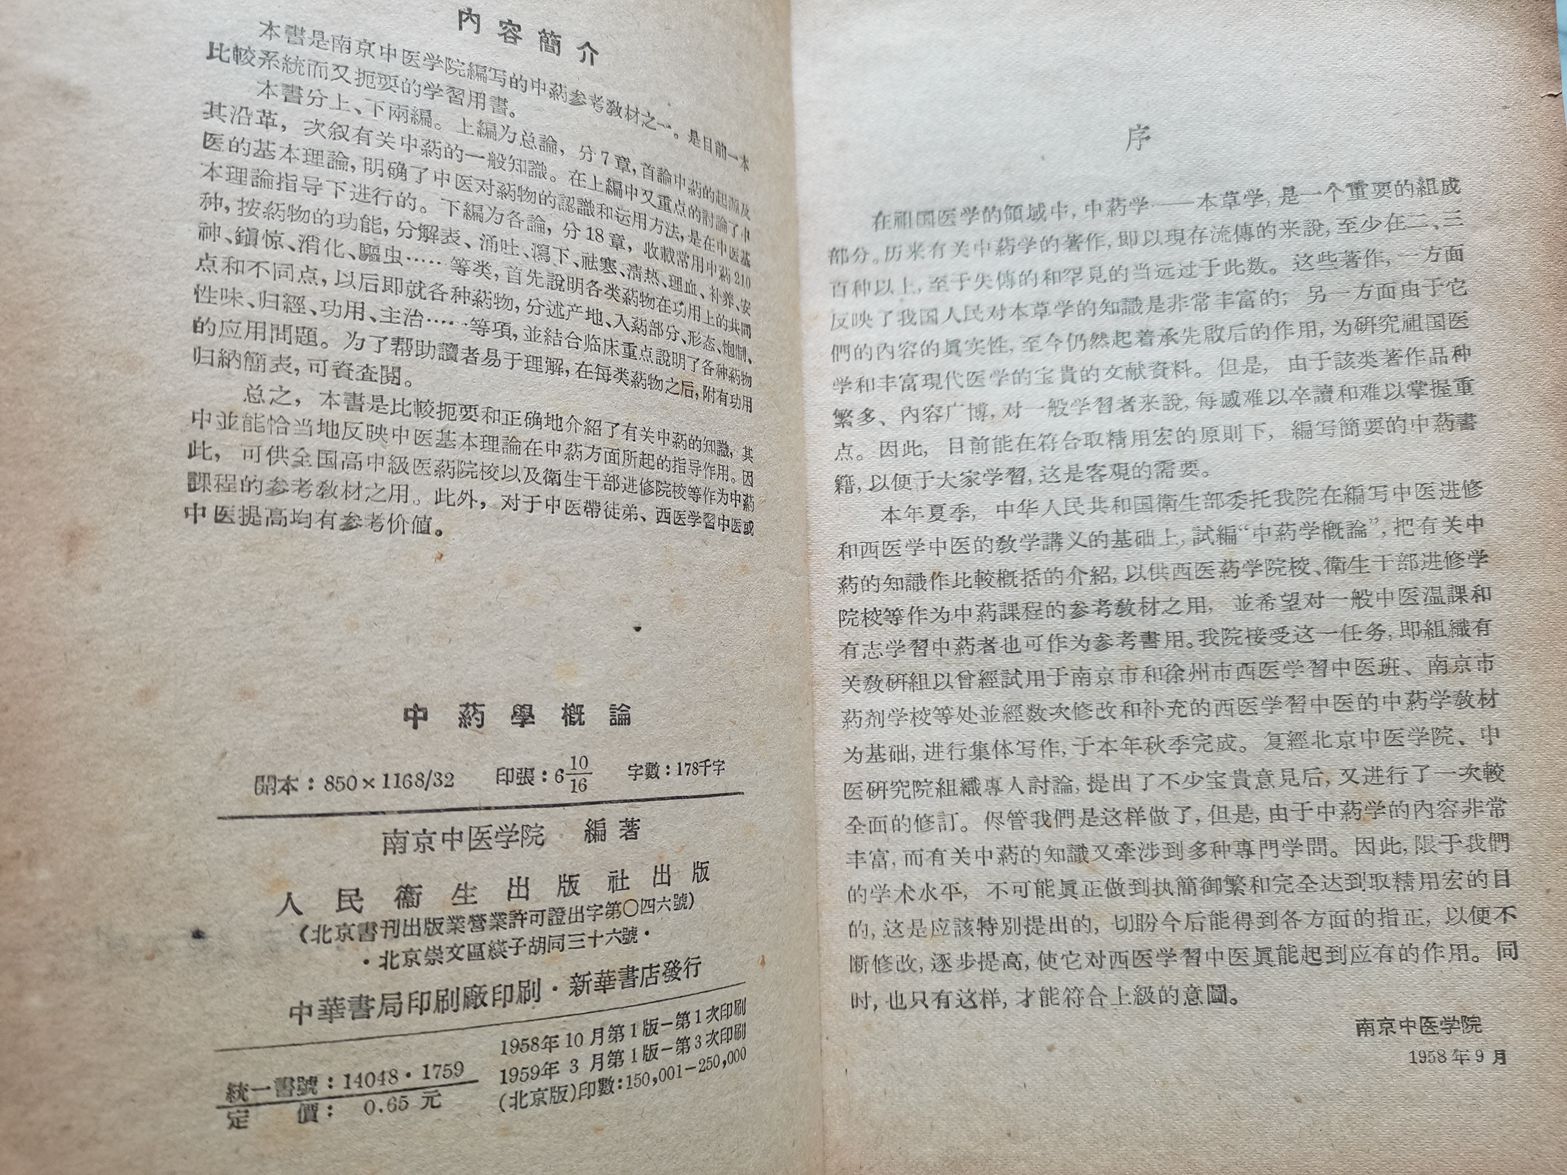 內容簡介
本書是南京中医学院編写的中葯参考敎材之一。是目前一本
比較系統而又扼要的学習用書。
本書分上、下兩編。上編为总論，分7章，首論中葯的起源及
其沿革，次叙有关中葯的一般知識。在上編中又重点的討論了中
医的基本理論，明确了中医对葯物的認識和运用方法，是在中医基
本理論指导下进行的。下編为各論，分18章，收載常用中葯210
种，按葯物的功能，分解表、涌吐、瀉下、祛寒、清热、理血、补养、安
神、鎭惊、消化、驅虫……等类，首先說明各类葯物在功用上的共同
点和不同点，以后即就各种葯物，分述产地、入葯部分、形态、炮制、
性味、归經、功用、主治……等項，並結合临床重点說明了各种葯物
的应用問題。为了帮助讀者易于理解，在每类葯物之后，附有功用
归納簡表，可資查閱。
总之，本書是比較扼要和正确地介紹了有关中葯的知識，其
中並能恰当地反映中医基本理論在中葯方面所起的指导作用。因
此，可供全国高中級医葯院校以及衛生干部进修院校等作为中葯
課程的参考敎材之用。此外，对于中医帶徒弟、西医学習中医或
中医提高均有参考价値。
中葯學概論
開本：850×1168/32 印張：6 10/16 字數：178千字
南京中医学院 編著
人民衞生出版社出版
（北京書刊出版業營業許可證出字第〇四六號）
·北京崇文區䌫子胡同三十六號·
中華書局印刷廠印刷·新華書店發行
統一書號：14048·1759
定 價：0.65元
1958年10月第1版—第1次印刷
1959年3月第1版—第3次印刷
（北京版）印數：150,001—250,000
序
在祖国医学的領域中，中葯学——本草学，是一个重要的組成
部分。历来有关中葯学的著作，即以現存流傳的来說，至少在二、三
百种以上，至于失傳的和罕見的当远过于此数。这些著作，一方面
反映了我国人民对本草学的知識是非常丰富的；另一方面由于它
們的內容的眞实性，至今仍然起着承先啟后的作用，为研究祖国医
学和丰富現代医学的宝貴的文献資料。但是，由于該类著作品种
繁多、內容广博，对一般学習者来說，每感难以卒讀和难以掌握重
点。因此，目前能在符合取精用宏的原則下，編写簡要的中葯書
籍，以便于大家学習，这是客覌的需要。
本年夏季，中华人民共和国衛生部委托我院在編写中医进修
和西医学中医的敎学講义的基础上，試編“中葯学概論”，把有关中
葯的知識作比較概括的介紹，以供西医葯学院校、衛生干部进修学
院校等作为中葯課程的参考敎材之用，並希望对一般中医温課和
有志学習中葯者也可作为参考書用。我院接受这一任务，即組織有
关敎研組以曾經試用于南京市和徐州市西医学習中医班、南京市
葯剂学校等处並經数次修改和补充的西医学習中医的中葯学敎材
为基础，进行集体写作，于本年秋季完成。复經北京中医学院、中
医研究院組織專人討論，提出了不少宝貴意見后，又进行了一次較
全面的修訂。侭管我們是这样做了，但是，由于中葯学的內容非常
丰富，而有关中葯的知識又牽涉到多种專門学問。因此，限于我們
的学术水平，不可能眞正做到执簡御繁和完全达到取精用宏的目
的，这是应該特別提出的，切盼今后能得到各方面的指正，以便不
断修改，逐步提高，使它对西医学習中医眞能起到应有的作用。同
时，也只有这样，才能符合上級的意圖。
南京中医学院
1958年9月